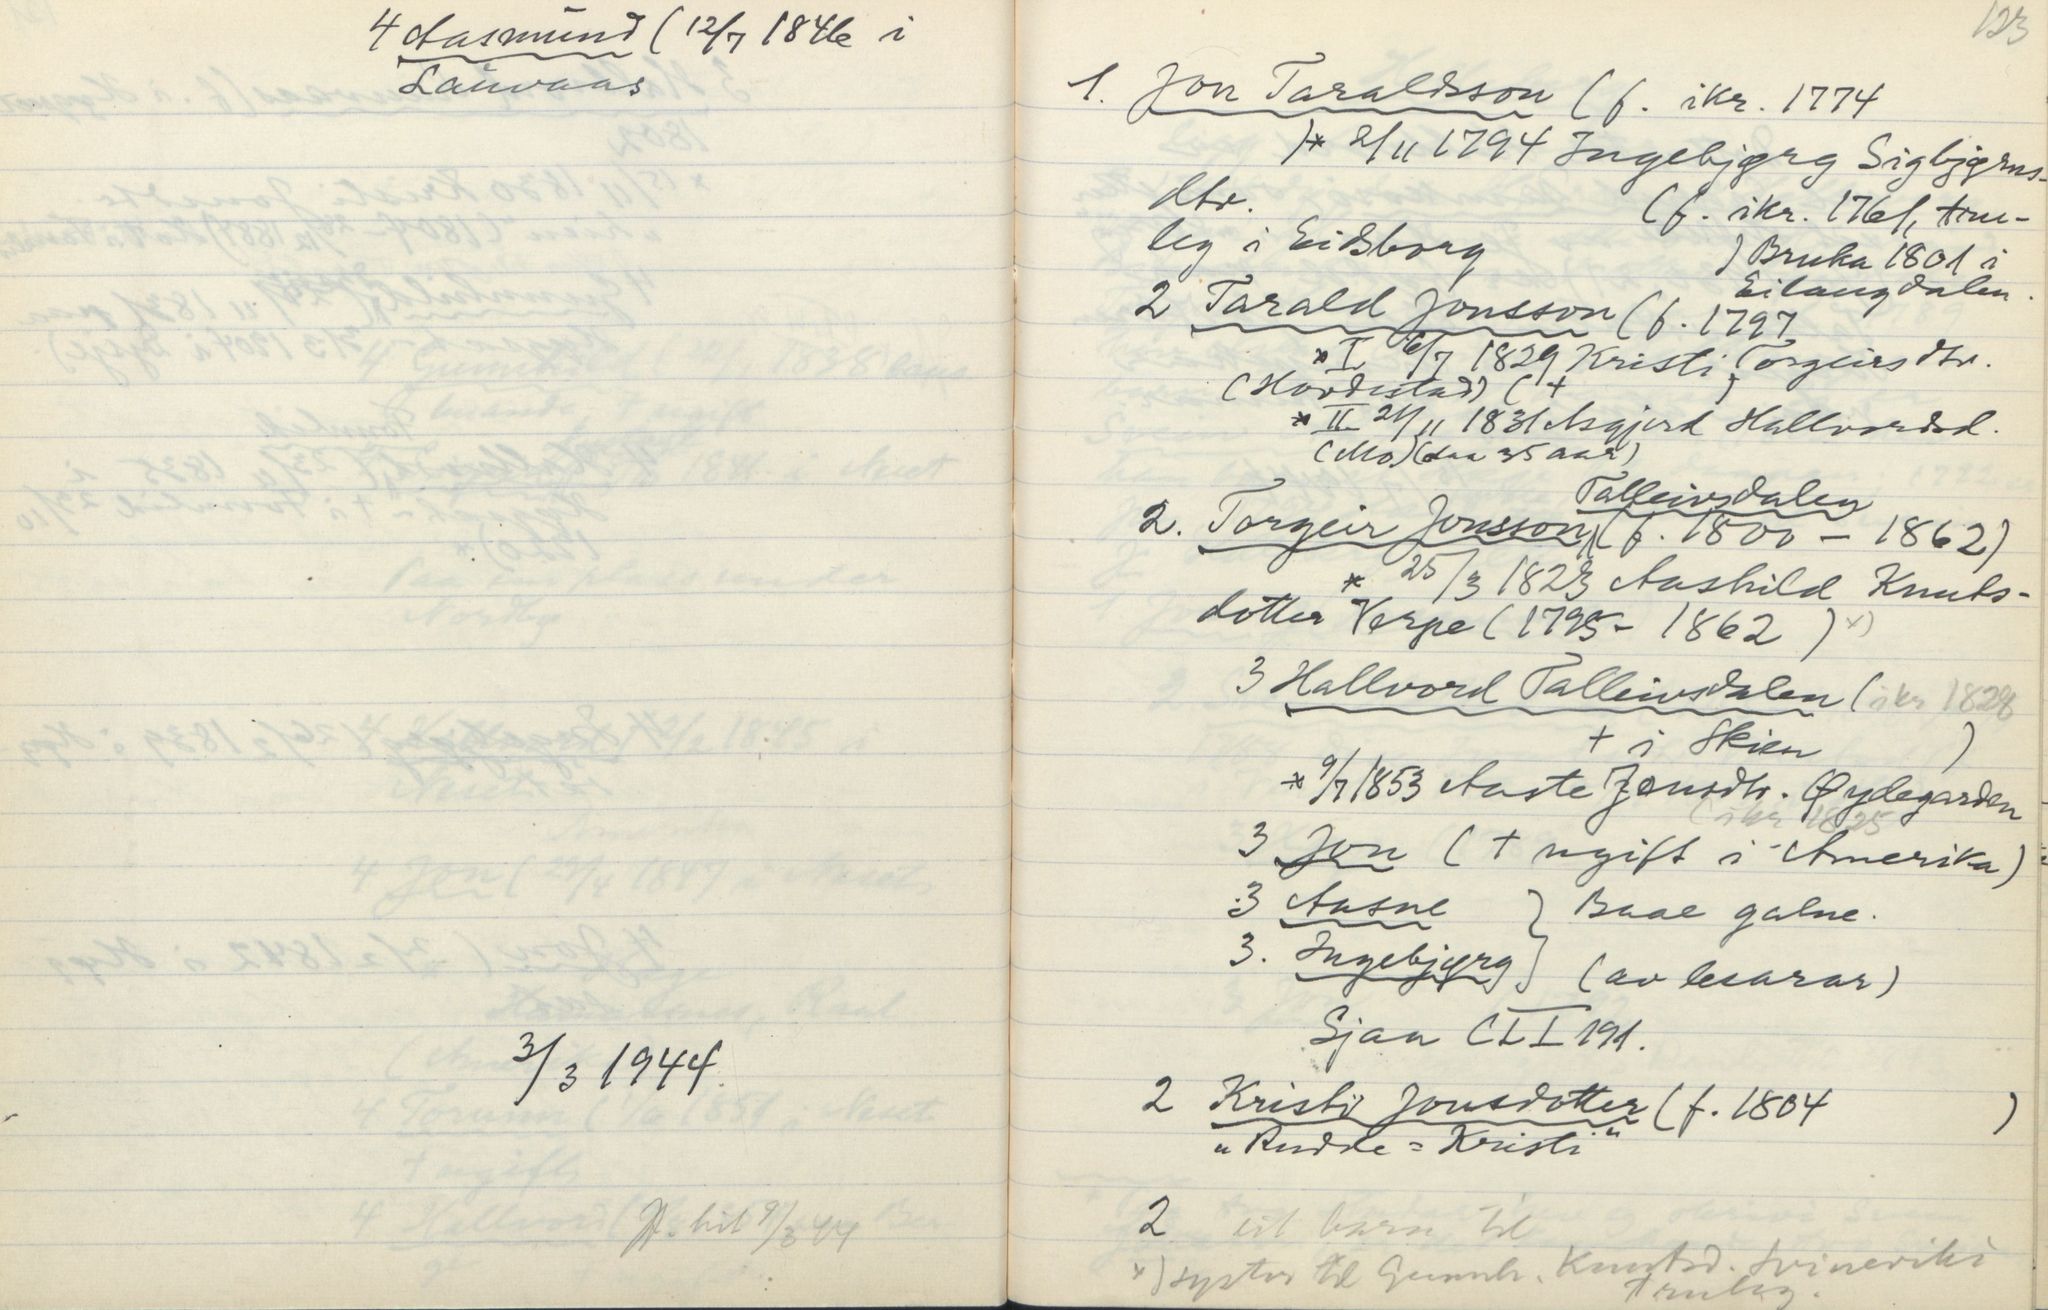 4 Aasmund ( 12/7 1846 i
Lauvaas
3/3 1944.
hit 9/3 44
123
1. Jon Taraldsson ( f. ikr. 1774
)* 2/11 1794 Ingebjørg Sigbjørns-
dtr. (f. ikr. 1761, tru-
leg i Eidsborg ) Bruka 1801 i
Eilaugdalen.
2 Tarald Jonsson ( f. 1797
* I 6/7 1829 Kristi Torgeirsdtr.
(Hovdestad) ( + )
* II 21/11 1831 Asgjerd Hallvordsd.
(Mo) (daa 35 aar)
Talleivsdalen
2. Torgeir Jonsson (f. 1800 - 1862)
* 25/3 1823 Aashild Knuts-
dotter Verpe ( 1795 - 1862 ) x)
3 Hallvord Talleivsdalen ( ikr 1828
+ i Skien )
* 9/7 1853 Aaste Jonsdtr. Øydegarden
( ikr 1825
3 Jon ( + ugift i Amerika )
3 Aasne } Baae galne.
3. Ingebjørg } (av lesarar)
Sjaa CLI 191.
2 Kristi Jonsdotter ( f. 1804 )
"Rudde = Kristi"
2 eit barn til
x) syster til Gunnh. Knutsd. Svineviki
truleg.